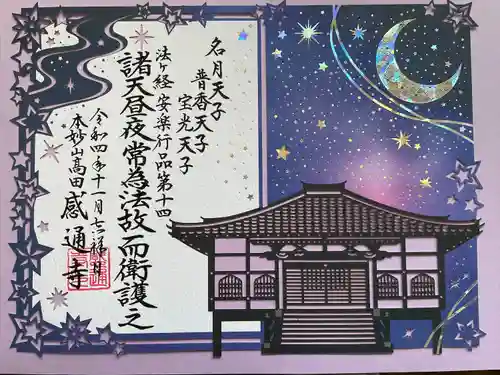 名月天子
普香天子
宝光天子
法ヶ経安楽行品第十四
諸天昼夜常為法故而衛護之
令和四年十一月七福日
本妙山高田感通寺